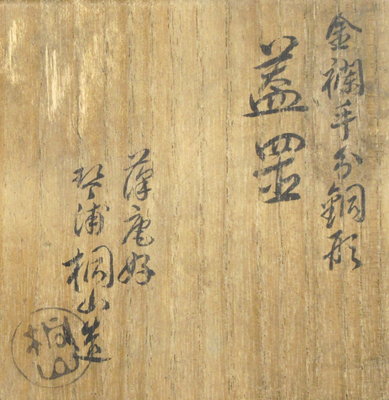 金襴手分銅形
蓋置
庵好
琴浦 桐山造
桐山